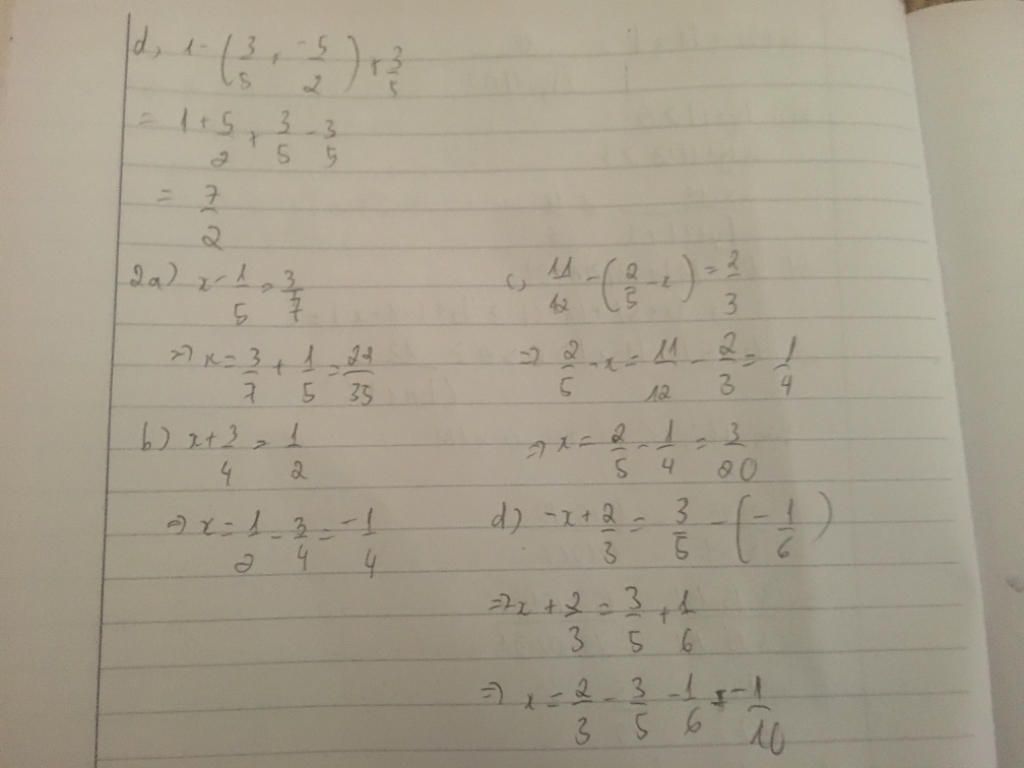 d, 1 - (3/5 + -5/2) + 3/5
= 1 + 5/2 + 3/5 - 3/5
= 7/2
2a) x - 1/5 = 3/7
=> x = 3/7 + 1/5 = 22/35
b) x + 3/4 = 1/2
=> x = 1/2 - 3/4 = -1/4
c, 11/12 - (2/5 - x) = 2/3
=> 2/5 - x = 11/12 - 2/3 = 1/4
=> x = 2/5 - 1/4 = 3/20
d) -x + 2/3 = 3/5 - (-1/6)
=> -x + 2/3 = 3/5 + 1/6
=> x = 2/3 - 3/5 - 1/6 = -1/10